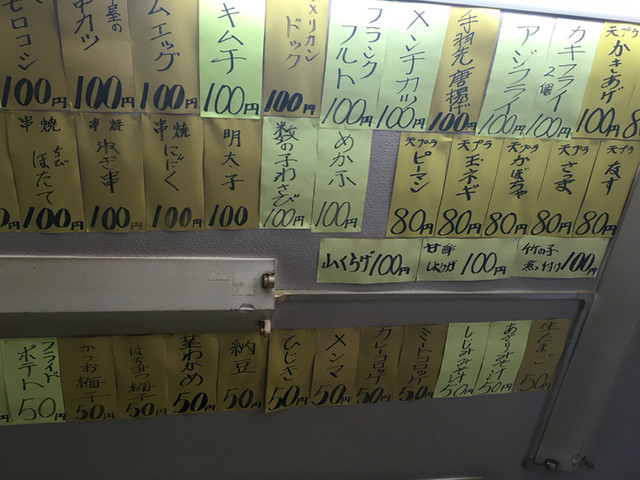 天プラ かきあげ 100円
カキフライ 2個 100円
アジフライ 100円
手羽先唐揚げ 100円
メンチカツ 100円
フランクフルト 100円
メリカンドック 100円
キムチ 100円
ムエッグ 100円
屋の串カツ 100円
モロコシ 100円
天プラ なす 80円
天プラ さつま 80円
天プラ かぼちゃ 80円
天プラ 玉ネギ 80円
天プラ ピーマン 80円
めかぶ 100円
数の子わさび 100円
明太子 100
串焼 にんにく 100円
串焼 ねぎ串 100円
串焼 ちび ほたて 100円
山くらげ 100円
甘酢しょうが 100円
竹の子煮つけ 100円
生たまご 50円
あさりみそ汁 50円
しじみみそ汁 50円
ミートコロッケ 50円
カレーコロッケ 50円
メンマ 50円
ひじき 50円
納豆 50円
茎わかめ 50円
はちみつ梅干 50円
かつお梅干 50円
フライドポテト 50円